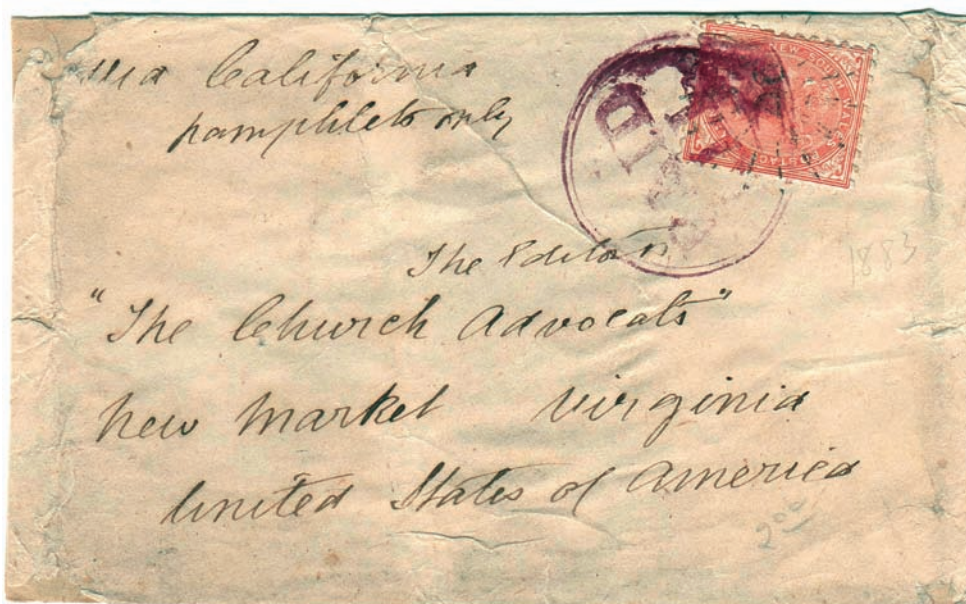 via California
pamphlets only
NEW SOUTH WALES
POSTAGE
The Editor
"The Church Advocate"
1883
New Market Virginia
United States of America
200